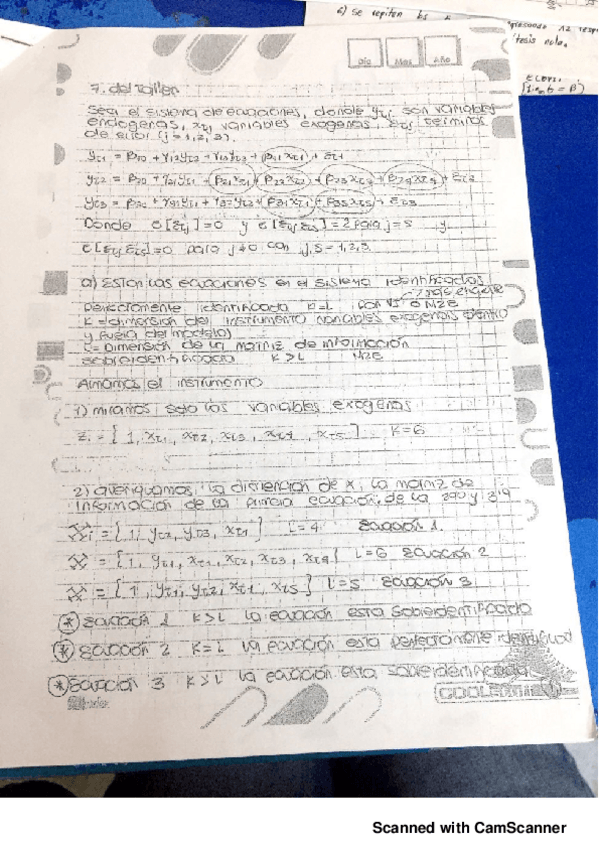 c) se repiten
Día Mes Año
7. del Taller
Sea el sistema de ecuaciones, donde yti son variables
endogenas, xti variables exogenas, εti terminos
de error (j=1,2,3).
yt1 = β10 + γ12yt2 + γ13yt3 + β11xt1 + εt1
yt2 = β20 + γ21yt1 + β21xt1 + β22xt2 + β23xt3 + β24xt4 + εt2
yt3 = β30 + γ31yt1 + γ32yt2 + β31xt1 + β35xt5 + εt3
Donde E[εtj]=0 y E[εtj εts]=2 para j=s y
E[εtj εts]=0 para j≠0 con j,s = 1,2,3.
a) Estan las ecuaciones en el sistema identificadas
Perfectamente identificada K=L con VI o M2E
K = dimension del instrumento (variables exogenas dentro
y fuera del modelo)
L = Dimension de la matriz de información
sobreidentificada K>L M2E
Armamos el instrumento
1) miramos solo las variables exogenas
Zi = [ 1, xt1, xt2, xt3, xt4, xt5 ] K=6
2) averiguamos la dimencion de X, la matriz de
información de la primera ecuación, de la 2da y 3ra
Xi = [ 1, yt2, yt3, xt1 ] L=4 Ecuación 1.
X = [ 1, yt1, xt1, xt2, xt3, xt4 ] L=6 Ecuación 2
X = [ 1, yt1, yt2, xt1, xt5 ] L=5 Ecuación 3
* Ecuación 1 K>L la ecuación esta sobreidentificada
* Ecuación 2 K=L la ecuación esta perfectamente identificad
* Ecuación 3 K>L la ecuación esta sobreidentificada
Scanned with CamScanner